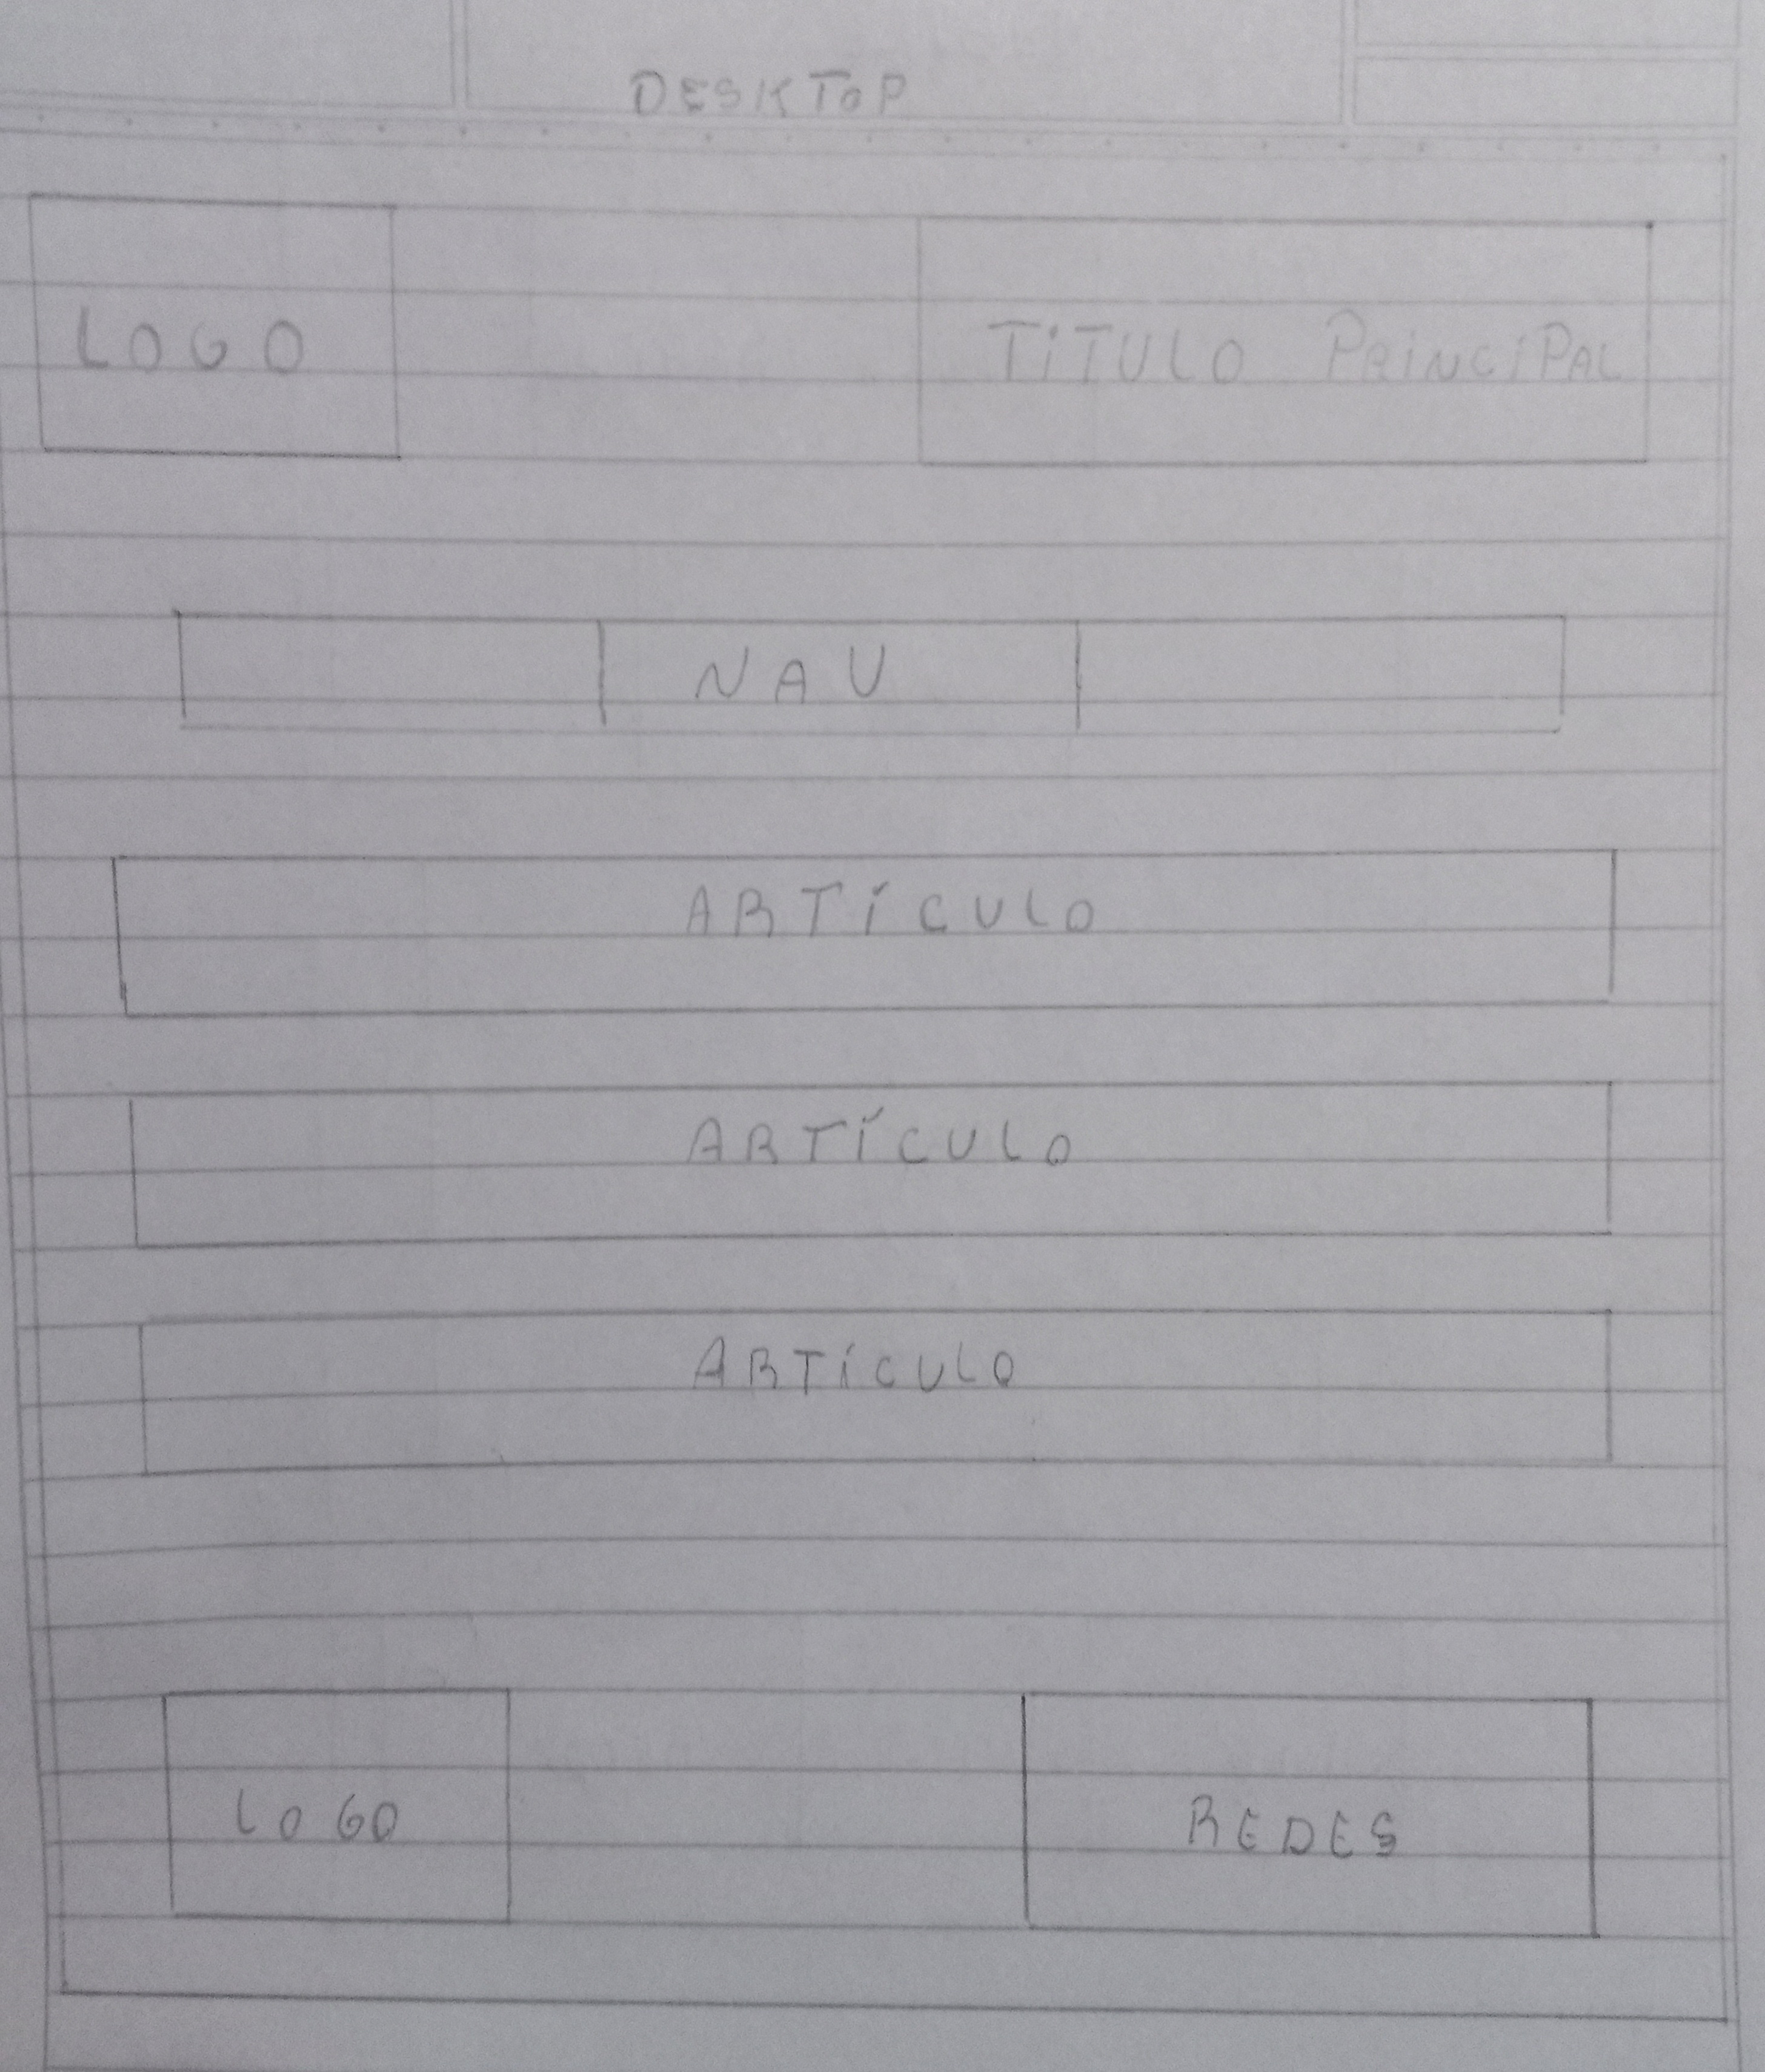 DESKTOP
LOGO
TiTULO PRiNCIPAL
NAV
ARTÍCULO
ARTÍCULO
ARTÍCULO
LOGO
REDES